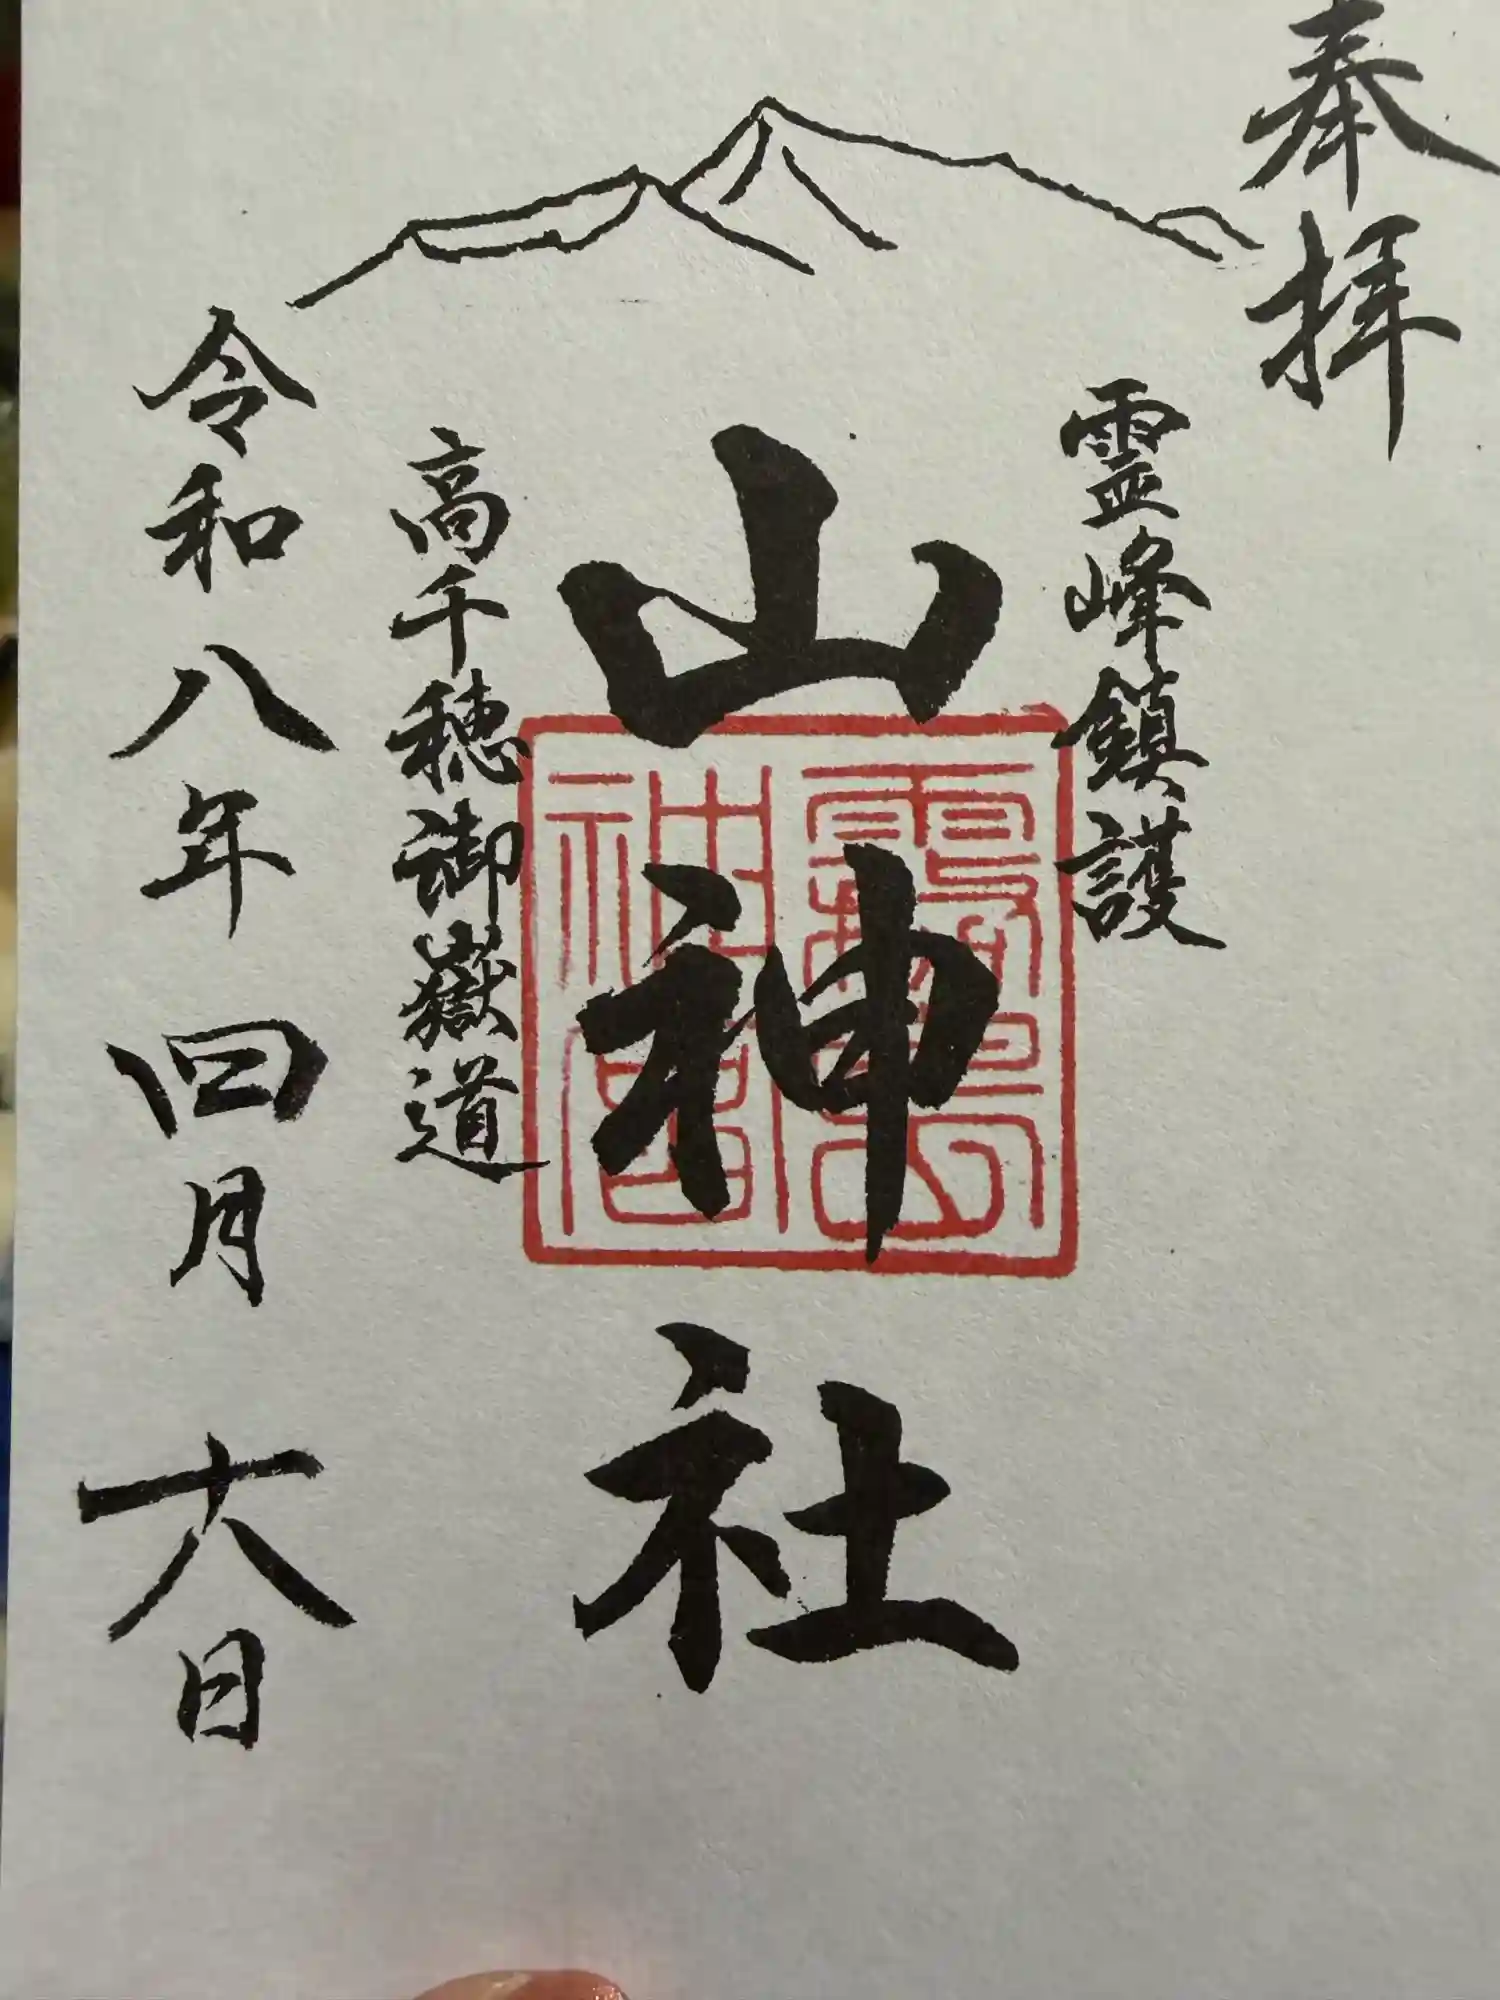 奉拝
霊峰鎮護
山神社
霧島神宮
高千穂御嶽道
令和八年四月六日